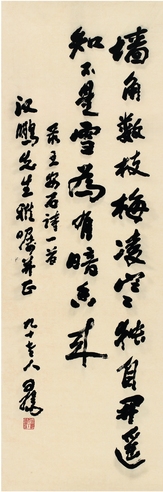 墙角数枝梅凌寒独自开遥
知不是雪为有暗香来
录王安石诗一首
汉鹏先生雅嘱并正
九十老人